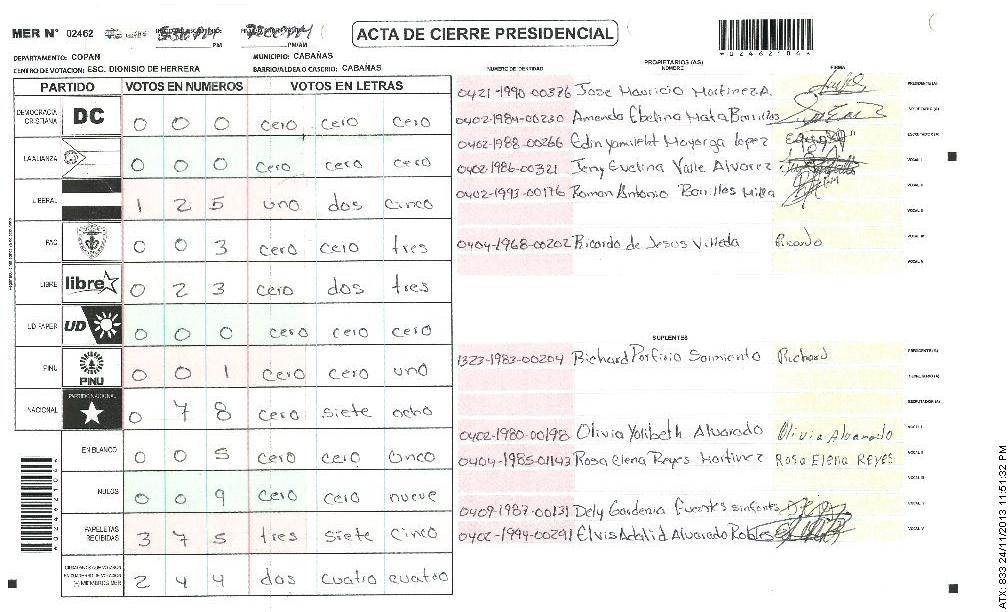 MER N° 02462
ACTA DE CIERRE PRESIDENCIAL
02462104
PM
PM/AM
DEPARTAMENTO: COPAN
MUNICIPIO: CABAÑAS
CENTRO DE VOTACION: ESC. DIONISIO DE HERRERA
BARRIO/ALDEA O CASERIO: CABAÑAS
PARTIDO VOTOS EN NUMEROS VOTOS EN LETRAS
DEMOCRACIA CRISTIANA DC 0 0 0 cero cero cero
LA ALIANZA 0 0 0 cero cero cero
LIBERAL 1 2 5 uno dos cinco
PAC 0 0 3 cero cero tres
LIBRE libre 0 2 3 cero dos tres
UD FAPER UD 0 0 0 cero cero cero
PINU PINU 0 0 1 cero cero uno
NACIONAL PARTIDO NACIONAL 0 7 8 cero siete ocho
EN BLANCO 0 0 5 cero cero cinco
NULOS 0 0 9 cero cero nueve
PAPELETAS RECIBIDAS 3 7 5 tres siete cinco
CIUDADANOS QUE VOTARON EN CUADERNO DE VOTACION (+) MIEMBROS MER 2 4 4 dos cuatro cuatro
NUMERO DE IDENTIDAD
PROPIETARIOS (AS)
NOMBRE
FIRMA
0421-1990-00376 Jose Mauricio Martinez A. PRESIDENTE (A)
0402-1984-00230 Amanda Ebelina Mata Barrillas SECRETARIO (A)
0402-1988-00266 Edin Yamileht Mayorga Lopez ESCRUTADOR (A)
0402-1986-00321 Jeny Evelina Valle Alvarez VOCAL I
0402-1993-00176 Roman Antonio Barrillas Milla VOCAL II
VOCAL III
0404-1968-00202 Ricardo de Jesus Villeda Ricardo VOCAL IV
VOCAL V
SUPLENTES
1323-1983-00204 Richard Porfirio Sarmiento Richard PRESIDENTE (A)
SECRETARIO (A)
ESCRUTADOR (A)
0402-1980-00198 Olivia Yolibeth Alvarado Olivia Alvarado VOCAL I
0404-1985-01143 Rosa Elena Reyes Martinez Rosa Elena REYES VOCAL II
VOCAL III
0409-1987-00131 Dely Gardenia Fuentes sinfontes VOCAL IV
0402-1994-00291 Elvis Adalid Alvarado Robles VOCAL V
ATX: 833 24/11/2013 11:51:32 PM